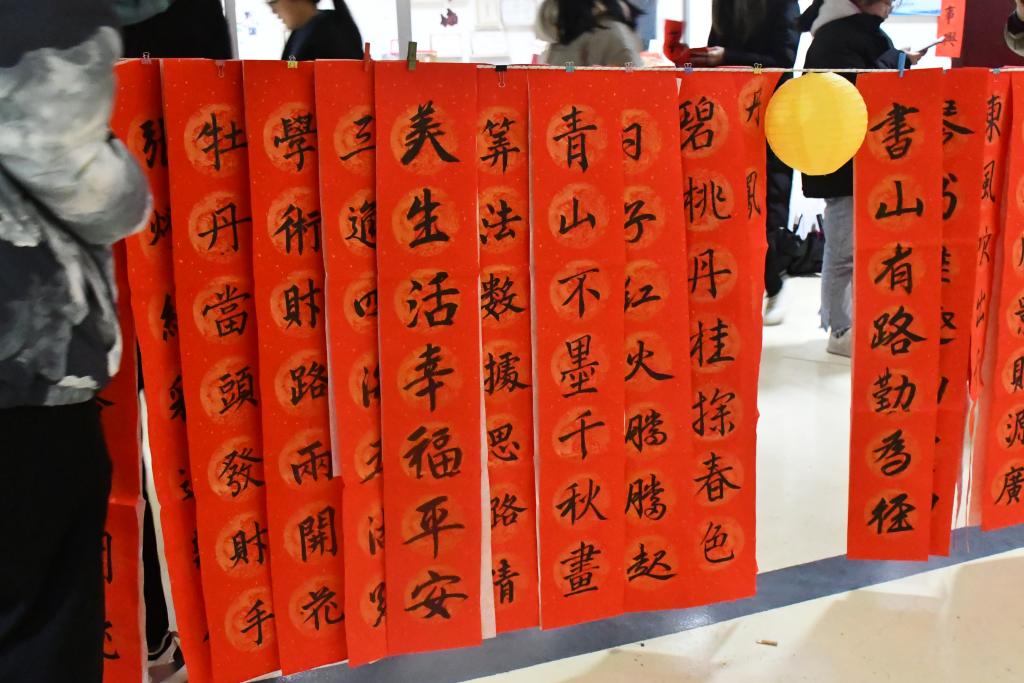 牡丹當頭發財手
學術財路兩開花
三進四
美生活幸福平安
算法數據思路清
青山不墨千秋畫
日子红火騰騰起
碧桃丹桂探春色
書山有路勤為徑
東風吹出
財源廣